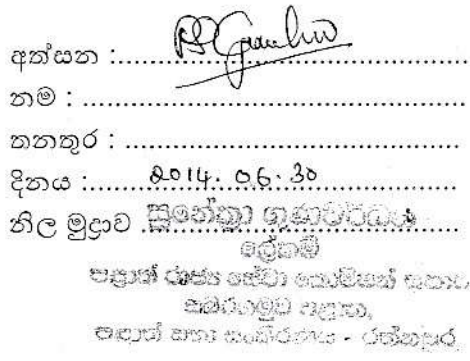 අත්සන :
නම :
තනතුර :
දිනය : 2014. 06. 30
නිල මුද්‍රාව සුනේත්‍රා ගුණවර්ධන
ලේකම්
පළාත් රාජ්‍ය සේවා කොමිෂන් සභාව
සබරගමුව පළාත,
පළාත් සභා සංකීර්ණය - රත්නපුර